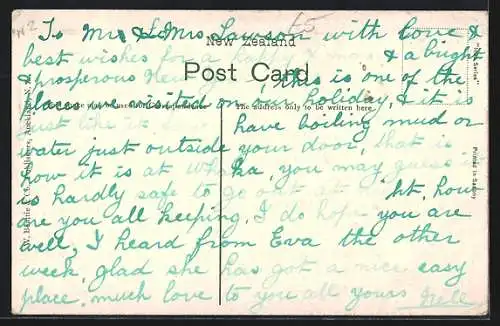 To Mr & Mrs Lawson with love &
best wishes for a happy Xmas & a bright
& prosperous New
New Zealand
Post Card
this is one of the
The address only to be written here.
places we visited on our holiday, & it is
just like it is to have boiling mud or
water just outside your door, that is
how it is at you may guess it
is hardly safe to go out at how
are you all keeping, I do hope you are
well, I heard from Eva the other
week, glad she has got a nice easy
place, much love to you all yours
Printed in Saxony